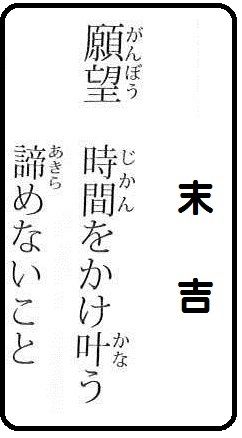 末吉
願望 時間をかけ叶う
諦めないこと
がんぼう
じかん
かな
あきら